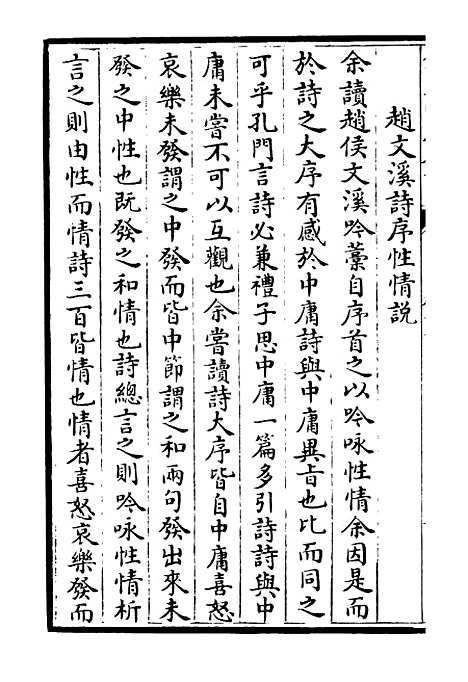 趙文溪詩序性情説
余讀趙侯文溪吟藁自序首之以吟咏性情余因是而
於詩之大序有感於中庸詩與中庸異旨也比而同之
可乎孔門言詩必兼禮子思中庸一篇多引詩詩與中
庸未嘗不可以互觀也余嘗讀詩大序皆自中庸喜怒
哀樂未發謂之中發而皆中節謂之和兩句發出來未
發之中性也既發之和情也詩總言之則吟咏性情析
言之則由性而情詩三百皆情也情者喜怒哀樂發而